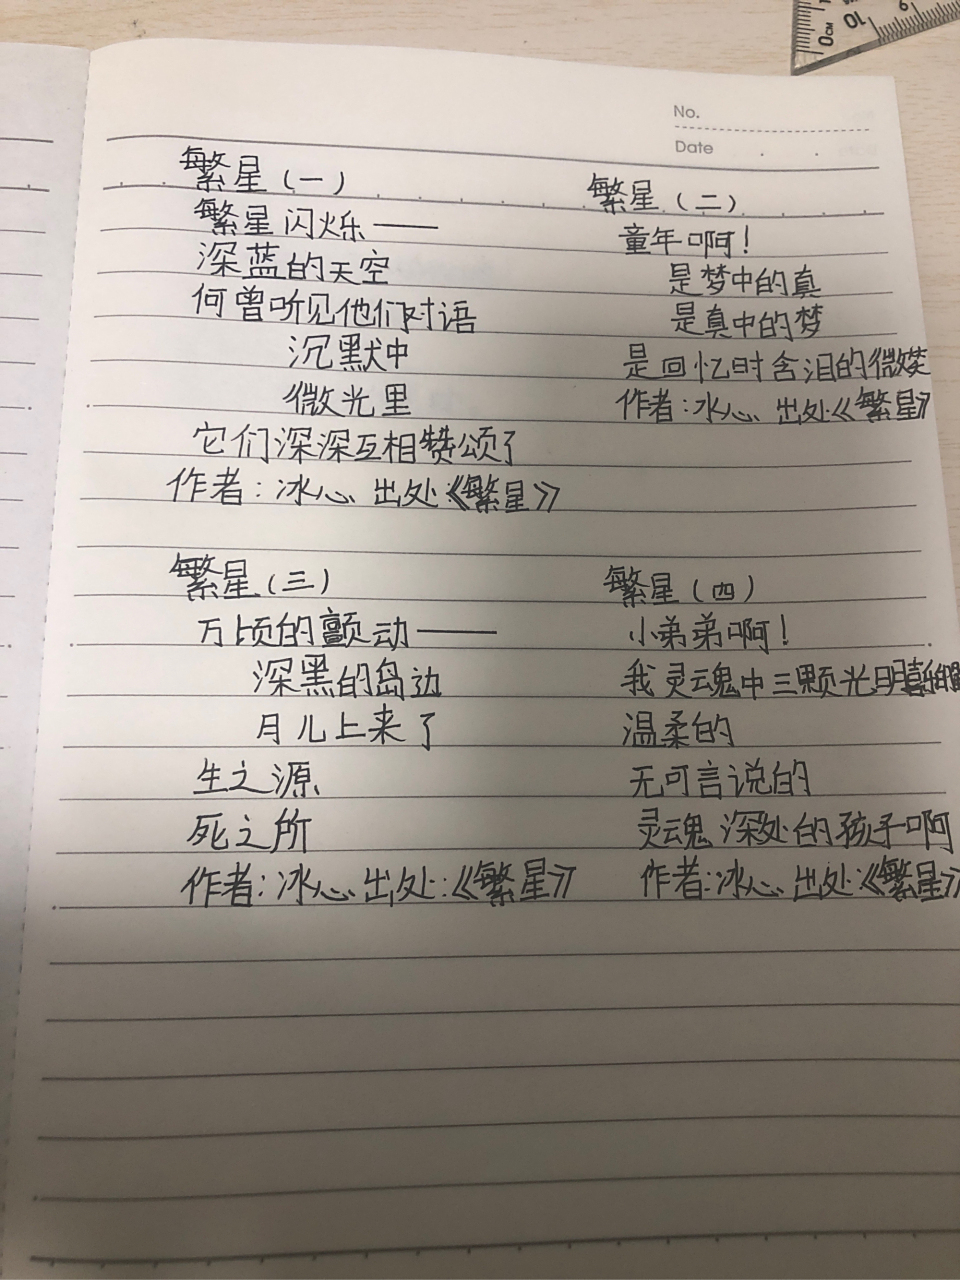 No.
Date
繁星（一）
繁星闪烁——
深蓝的天空
何曾听见他们对语
沉默中
微光里
它们深深互相赞颂了
作者：冰心 出处《繁星》
繁星（二）
童年啊！
是梦中的真
是真中的梦
是回忆时含泪的微笑
作者：冰心 出处《繁星》
繁星（三）
万顷的颤动——
深黑的岛边
月儿上来了
生之源
死之所
作者：冰心 出处：《繁星》
繁星（四）
小弟弟啊！
我灵魂中三颗光明喜
温柔的
无可言说的
灵魂深处的孩子啊
作者：冰心 出处：《繁星》
0CM
10
9